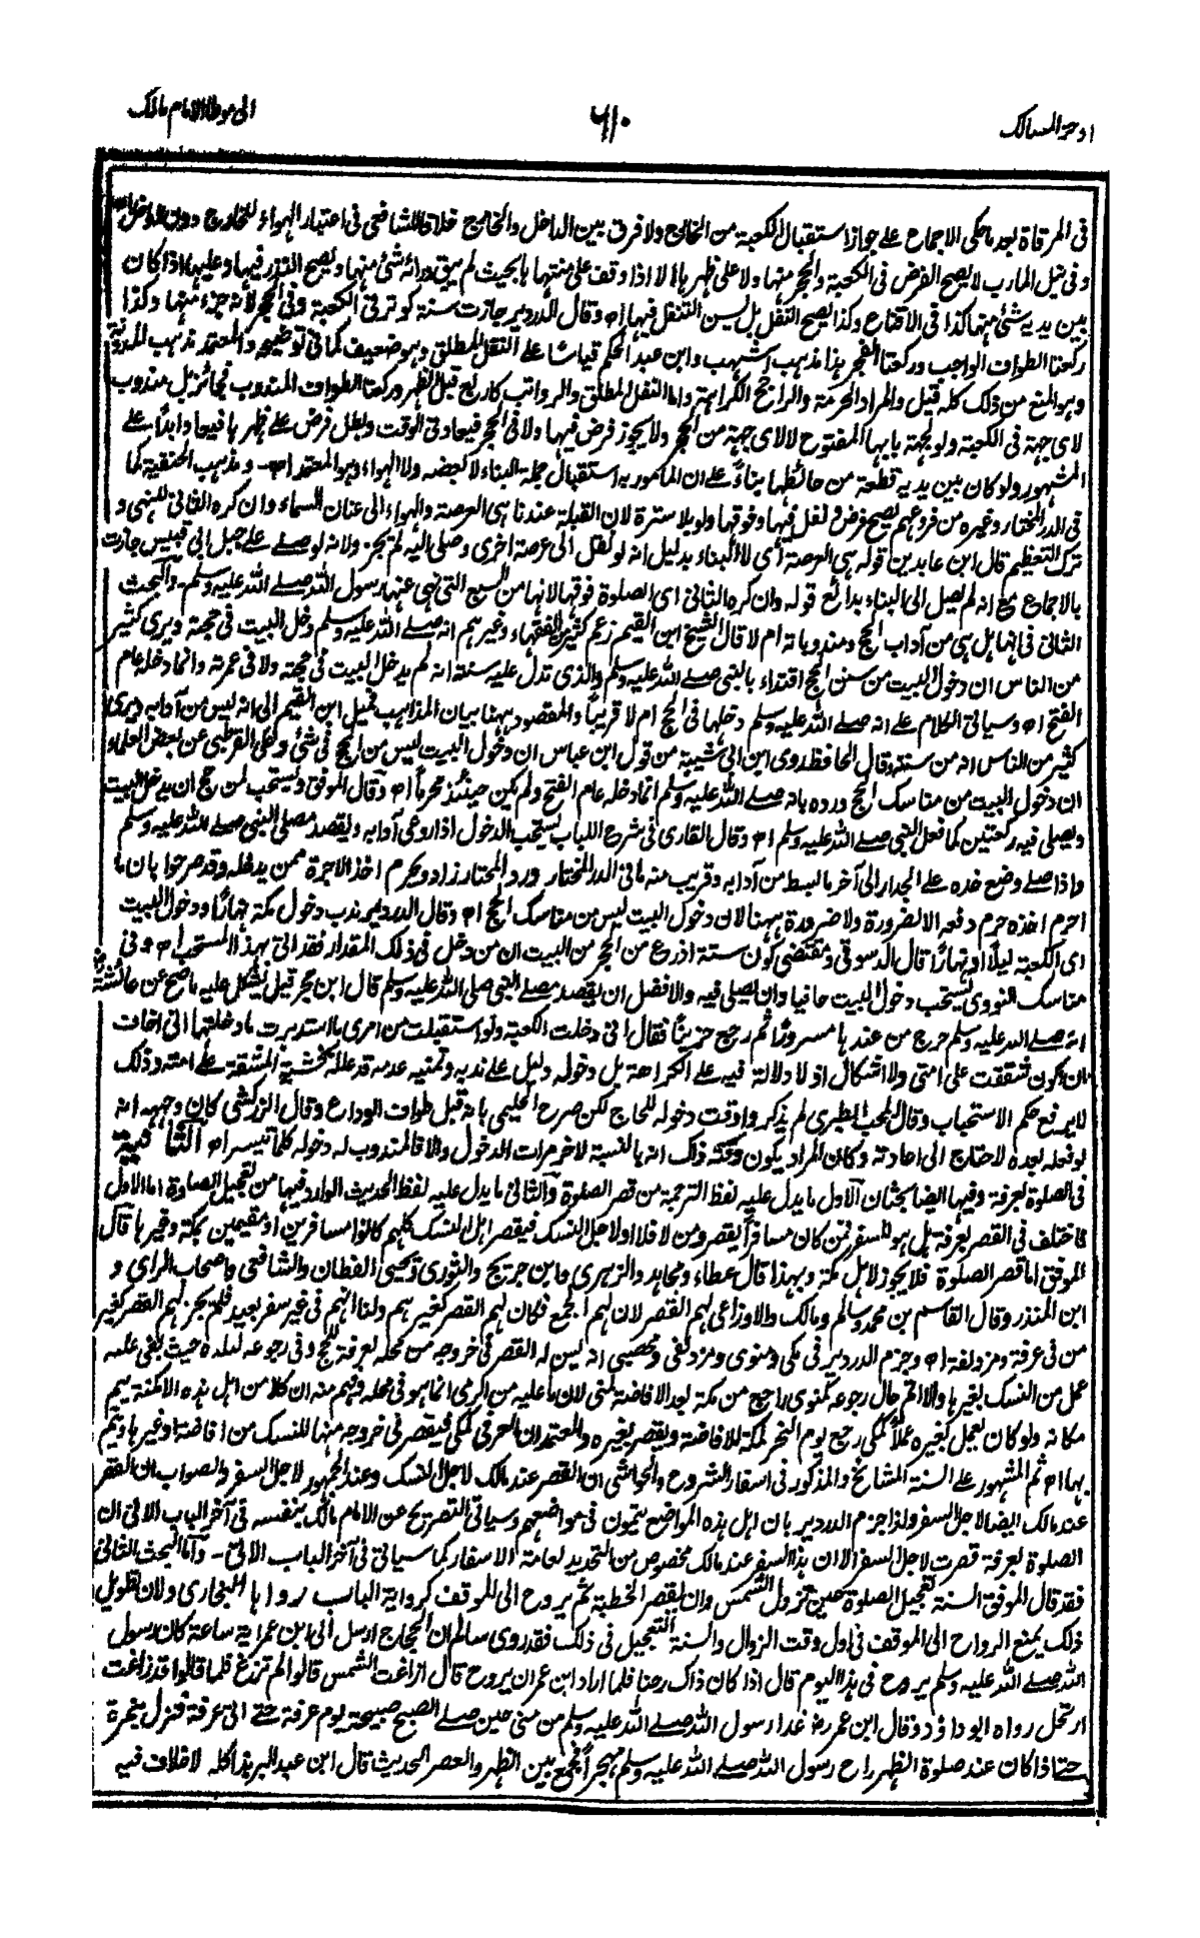 اوجز المسالك
٦١٠
الى موطا الامام مالك
فى المرقاة بعد ما حكى الاجماع على جواز استقبال الكعبة من الخارج ولا فرق بين الداخل والخارج خلافا للشافعى فى اعتبار الهواء للخارج دون الداخل اه
وفى نيل المارب لا يصح الفرض فى الكعبة والحجر منها ولا على ظهرها الا اذا وقف على منتهاها بحيث لم يبق ورائه شئ منها ويصح النذر فيها وعليها اذا كان
بين يديه شئ منها كذا فى الاقناع وكذا يصح التنفل بل يسن التنفل فيها اه وقال الدردير جازت سنة كوتر فى الكعبة وفى الحجر لانه جزء منها وكذا
ركعتا الطواف الواجب وركعتا الفجر هذا مذهب اشهب وابن عبد الحكم قياسا على النفل المطلق وهو ضعيف كما فى توضيحه والمعتمد مذهب المدونة
وهو المنع من ذلك كله قيل والمراد الحرمة والراجح الكراهة واما النفل المطلق والرواتب كاربع قبل الظهر وركعتا الطواف المندوب فجائز بل مندوب
لاى جهة فى الكعبة ولو لجهة بابها المفتوح لا لاى جهة من الحجر ولا يجوز فرض فيها ولا فى الحجر فيعاد فى الوقت وبطل فرض على ظهرها فيعاد ابدا على
المشهور ولو كان بين يديه قطعة من حائطها بناء على ان المامور به استقبال جملة البناء لا بعضه ولا الهواء وهو المعتمد اه - ومذهب الحنفية كما
فى الدر المختار وغيره من فروعهم يصح فرض ونفل فيها وفوقها ولو بلا سترة لان القبلة عندنا هى العرصة والهواء الى عنان السماء وان كره الثانى للنهى و
ترك التعظيم قال ابن عابدين قوله هى العرصة اى لا البناء بدليل انه لو نقل الى عرصة اخرى وصلى اليه لم تجز ولانه لو صلى على جبل ابى قبيس جازت
بالاجماع مع انه لم يصل الى البناء بدائع قوله وان كره الثانى اى الصلوة فوقها لانها من السبع التى نهى عنها رسول الله صلى الله عليه وسلم - والبحث
الثانى فى انها هل هى من آداب الحج ومندوباته ام لا قال الشيخ ابن القيم زعم كثير من الفقهاء وغيرهم انه صلى الله عليه وسلم دخل البيت فى حجته ويرى كثير
من الناس ان دخول البيت من سنن الحج اقتداء بالنبى صلى الله عليه وسلم والذى تدل عليه سنته انه لم يدخل البيت فى حجته ولا فى عمرته وانما دخله عام
الفتح اه وسياتى الكلام على انه صلى الله عليه وسلم دخلها فى الحج ام لا قريبا والمقصود ههنا بيان المذاهب فميل ابن القيم الى انه ليس من آدابه ويرى
كثير من الناس انه من سنته وقال الحافظ روى ابن ابى شيبة من قول ابن عباس ان دخول البيت ليس من الحج فى شئ وحكى القرطبى عن بعض العلماء
ان دخول البيت من مناسك الحج ورده بانه صلى الله عليه وسلم انما دخله عام الفتح ولم يكن حينئذ محرما اه وقال الموفق ويستحب لمن حج ان يدخل البيت
ويصلى فيه ركعتين كما فعل النبى صلى الله عليه وسلم اه وقال القارى فى شرح اللباب يستحب الدخول اذا روعى آدابه ويقصد مصلى النبى صلى الله عليه وسلم
فاذا صلى وضع خده على الجدار الى آخر ما بسط من آدابه وقريب منه ما فى الدر المختار ورد المحتار زاد ويحرم اخذ الاجرة ممن يدخله وقد صرحوا بان ما
احرم اخذه حرم دفعه الا لضرورة ولا ضرورة ههنا لان دخول البيت ليس من مناسك الحج اه وقال الدردير ندب دخول مكة نهارا ودخول البيت
اى الكعبة ليلا او نهارا قال الدسوقى ومقتضى كون ستة اذرع من الحجر من البيت ان من دخل فى ذلك المقدار فقد اتى بهذا المستحب اه وفى
مناسك النووى يستحب دخول البيت حافيا وان يصلى فيه والافضل ان يقصد مصلى النبى صلى الله عليه وسلم قال ابن حجر قيل يشكل عليه ما صح عن عائشة
انه صلى الله عليه وسلم خرج من عندها مسرورا ثم رجع حزينا فقال انى دخلت الكعبة ولو استقبلت من امرى ما استدبرت ما دخلتها انى اخاف
ان اكون شققت على امتى ولا اشكال اذ لا دلالة فيه على الكراهة بل دخوله دليل على ندبه وتمنيه عدمه قد علله بخشية المشقة على امته وذلك
لا يرفع حكم الاستحباب وقال المحب الطبرى لم يذكروا وقت دخوله للحاج لكن صرح الحليمى بانه قبل طواف الوداع وقال الزركشى كان وجهه انه
لو فعله بعده لاحتاج الى اعادته وكان المراد بكون وقته ذلك انه بالنسبة لاخر مرات الدخول والا فالمندوب له دخوله كلما تيسر اه الثانية
فى الصلوة بعرفة وفيها ايضا بحثان الاول ما يدل عليه لفظ الترجمة من قصر الصلوة والثانى ما يدل عليه لفظ الحديث الوارد فيها من تعجيل الصلوة اما الاول
فاختلف فى القصر بعرفة هل هو للسفر فمن كان مسافرا يقصر ومن لا فلا او لاجل النسك فيقصر اهل النسك كلهم كانوا مسافرين او مقيمين بمكة وغيرها قال
الموفق اما قصر الصلوة فلا يجوز لاهل مكة وبهذا قال عطاء ومجاهد والزهرى وابن جريج والثورى ويحيى القطان والشافعى واصحاب الراى و
ابن المنذر وقال القاسم بن محمد وسالم ومالك والاوزاعى لهم القصر لان لهم الجمع فكان لهم القصر كغيرهم ولنا انهم فى غير سفر بعيد فلم يجز لهم القصر كغير
من فى عرفة ومزدلفة اه وجزم الدردير فى مكى ومنوى ومزدلفى ومحصبى انه ليس له القصر فى خروجه من محله لعرفة للحج وفى رجوعه لبلده حيث بقى عليه
عمل من النسك بغيرها والا اتم حال رجوعه كمنوى راجع من مكة بعد الافاضة لمنى لان ما عليه من الرمى انما هو فى محله وفهم منه ان كلا من اهل هذه الامكنة يتم
مكانه ولو كان يعمل كغيره عملا كمكى رجع يوم النحر لمكة للافاضة ويقصر بغيره والمعتمد ان العرفى كمكى فيقصر فى خروجه منها للنسك من افاضة وغيرها ويتم
بها اه ثم المشهور على السنة المشائخ والمذكور فى اسفار الشروح والحواشى ان القصر عند مالك لاجل النسك وعند الجمهور لاجل السفر والصواب ان القصر
عند مالك ايضا لاجل السفر ولذا جزم الدردير بان اهل هذه المواضع يتمون فى مواضعهم وسياتى التصريح عن الامام مالك بنفسه فى آخر الباب الاتى ان
الصلوة بعرفة قصرت لاجل السفر الا ان هذا السفر عند مالك مخصوص من التحديد لعامة الاسفار كما سياتى فى آخر الباب الاتى - واما البحث الثانى
فقد قال الموفق السنة تعجيل الصلوة حين تزول الشمس وان يقصر الخطبة ثم يروح الى الموقف كرواية الباب رواها البخارى ولان تطويل
ذلك يمنع الرواح الى الموقف فى اول وقت الزوال والسنة التعجيل فى ذلك فقد روى سالم ان الحجاج ارسل الى ابن عمر اية ساعة كان رسول
الله صلى الله عليه وسلم يروح فى هذا اليوم قال اذا كان ذاك رحنا فلما اراد ابن عمر ان يروح قال ازاغت الشمس قالوا لم تزغ فلما قالوا قد زاغت
ارتحل رواه ابو داؤد وقال ابن عمر رض غدا رسول الله صلى الله عليه وسلم من منى حين صلى الصبح صبيحة يوم عرفة حتى اتى عرفة فنزل بنمرة
حتى اذا كان عند صلوة الظهر راح رسول الله صلى الله عليه وسلم مهجرا فجمع بين الظهر والعصر الحديث قال ابن عبد البر هذا كله لا خلاف فيه